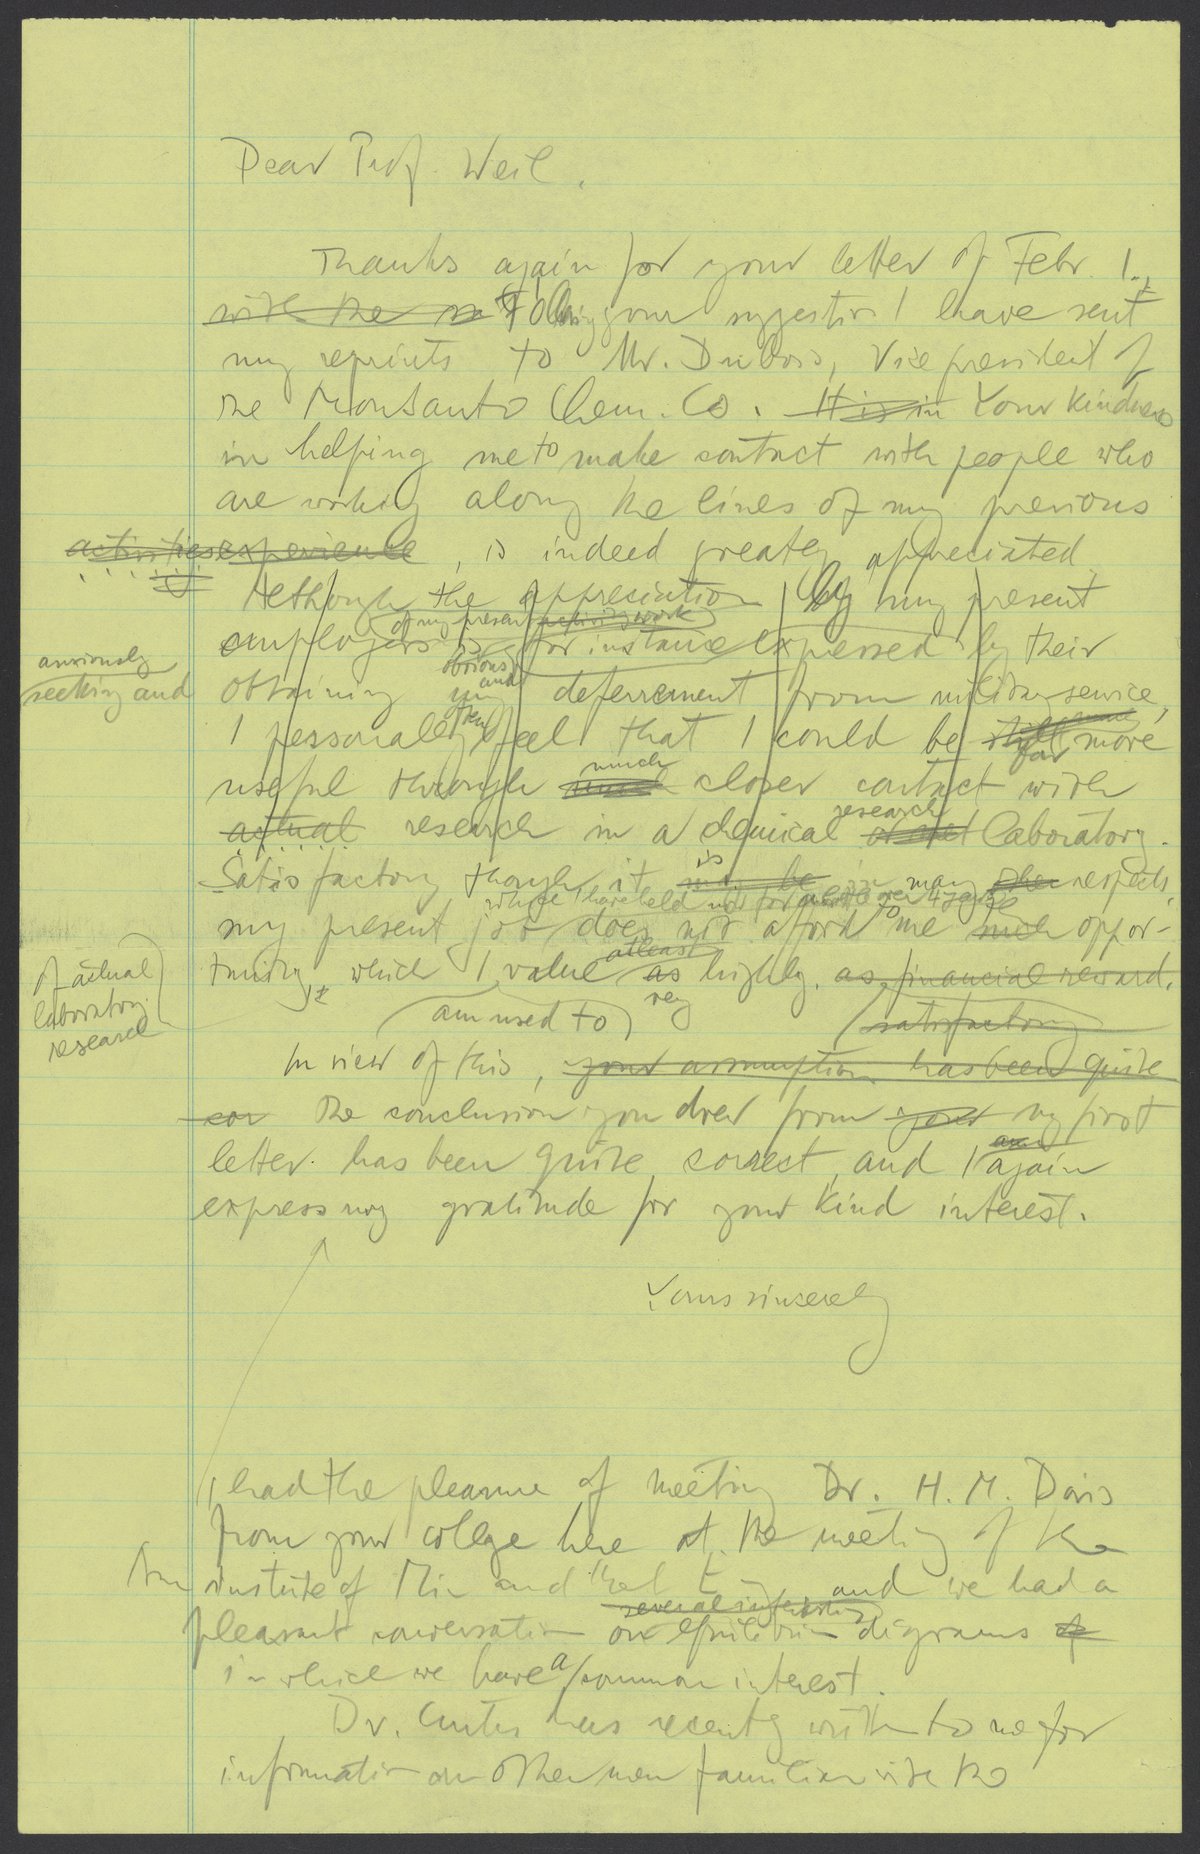 Dear Prof. Weil,
Thanks again for your letter of Febr. 1.,
with the Following your suggestion I have sent
my reprints to Mr. DuBois, Vice president of
the Monsanto Chem. Co. It is in Your kindness
in helping me to make contact with people who
are working along the lines of my previous
activities experience, is indeed greatly appreciated
Although the appreciation by my present
of my present activity work
employers is for instance expressed by their
anxiously
seeking and
obvious and
obtaining my deferrement from military service,
I personally feel that I could be still more
far
much
useful through closer contact with
research
actual research in a chemical laboratory.
is
Satisfactory though it may be in many other respects,
my present job does not afford to me such oppor-
at least
tunity, which I value as highly, as financial reward.
very
of actual
laboratory
research
am used to
satisfactory
In view of this, your assumption has been quite
cor the conclusion you drew from your my first
am
letter has been quite correct, and I again
express my gratitude for your kind interest.
Yours sincerely
I had the pleasure of meeting Dr. H. M. Davis
from your college here at the meeting of the
Am institute of Min and Met E and we had a
several interesting
pleasant conversation on equilibrium digrams of
in which we have a common interest.
Dr. has recently written to me for
information on other men familiar with the